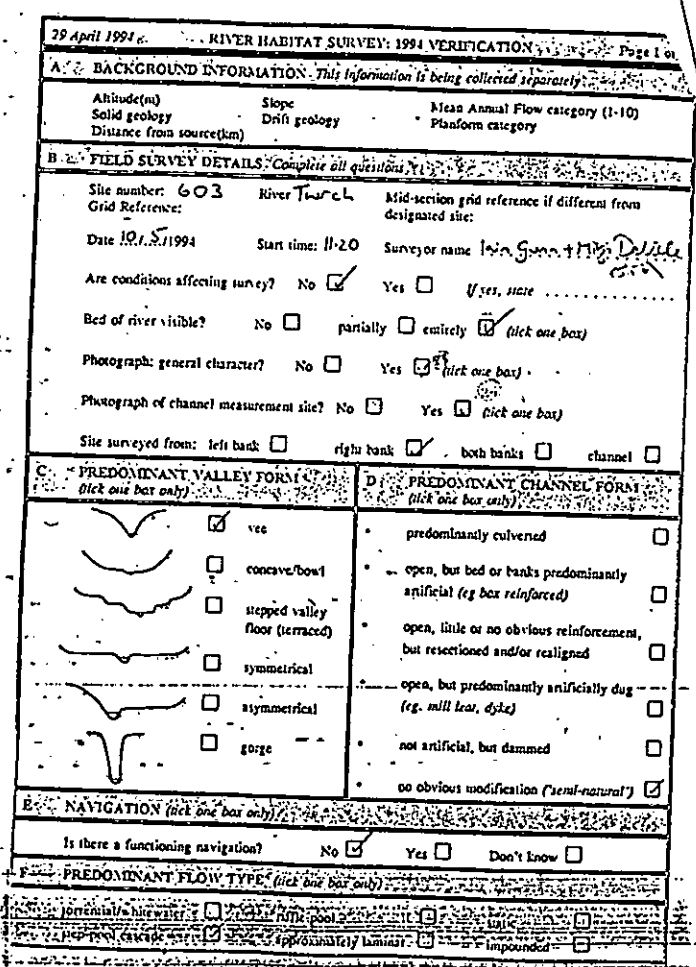 29 April 1994 RIVER HABITAT SURVEY: 1994 VERIFICATION Page 1 of
A BACKGROUND INFORMATION - This information is being collected separately
Altitude(m) Slope Mean Annual Flow category (1-10)
Solid geology Drift geology Planform category
Distance from source(km)
B FIELD SURVEY DETAILS: Complete all questions
Site number: 603 River Twrch Mid-section grid reference if different from
Grid Reference: designated site:
Date 10/5/1994 Start time: 11.20 Surveyor name Iain Gunn +
Are conditions affecting survey? No Yes If yes, state ..........
Bed of river visible? No partially entirely (tick one box)
Photograph: general character? No Yes (tick one box)
Photograph of channel measurement site? No Yes (tick one box)
Site surveyed from: left bank right bank both banks channel
C PREDOMINANT VALLEY FORM
(tick one box only)
vee
concave/bowl
stepped valley
floor (terraced)
symmetrical
asymmetrical
gorge
D PREDOMINANT CHANNEL FORM
(tick one box only)
predominantly culverted
open, but bed or banks predominantly
artificial (eg box reinforced)
open, little or no obvious reinforcement,
but resectioned and/or realigned
open, but predominantly artificially dug
(eg. mill leat, dyke)
not artificial, but dammed
no obvious modification ("semi-natural")
E NAVIGATION (tick one box only)
Is there a functioning navigation? No Yes Don't know
F PREDOMINANT FLOW TYPE (tick one box only)
torrential/whitewater riffle-pool
step-pool cascade approximately laminar impounded